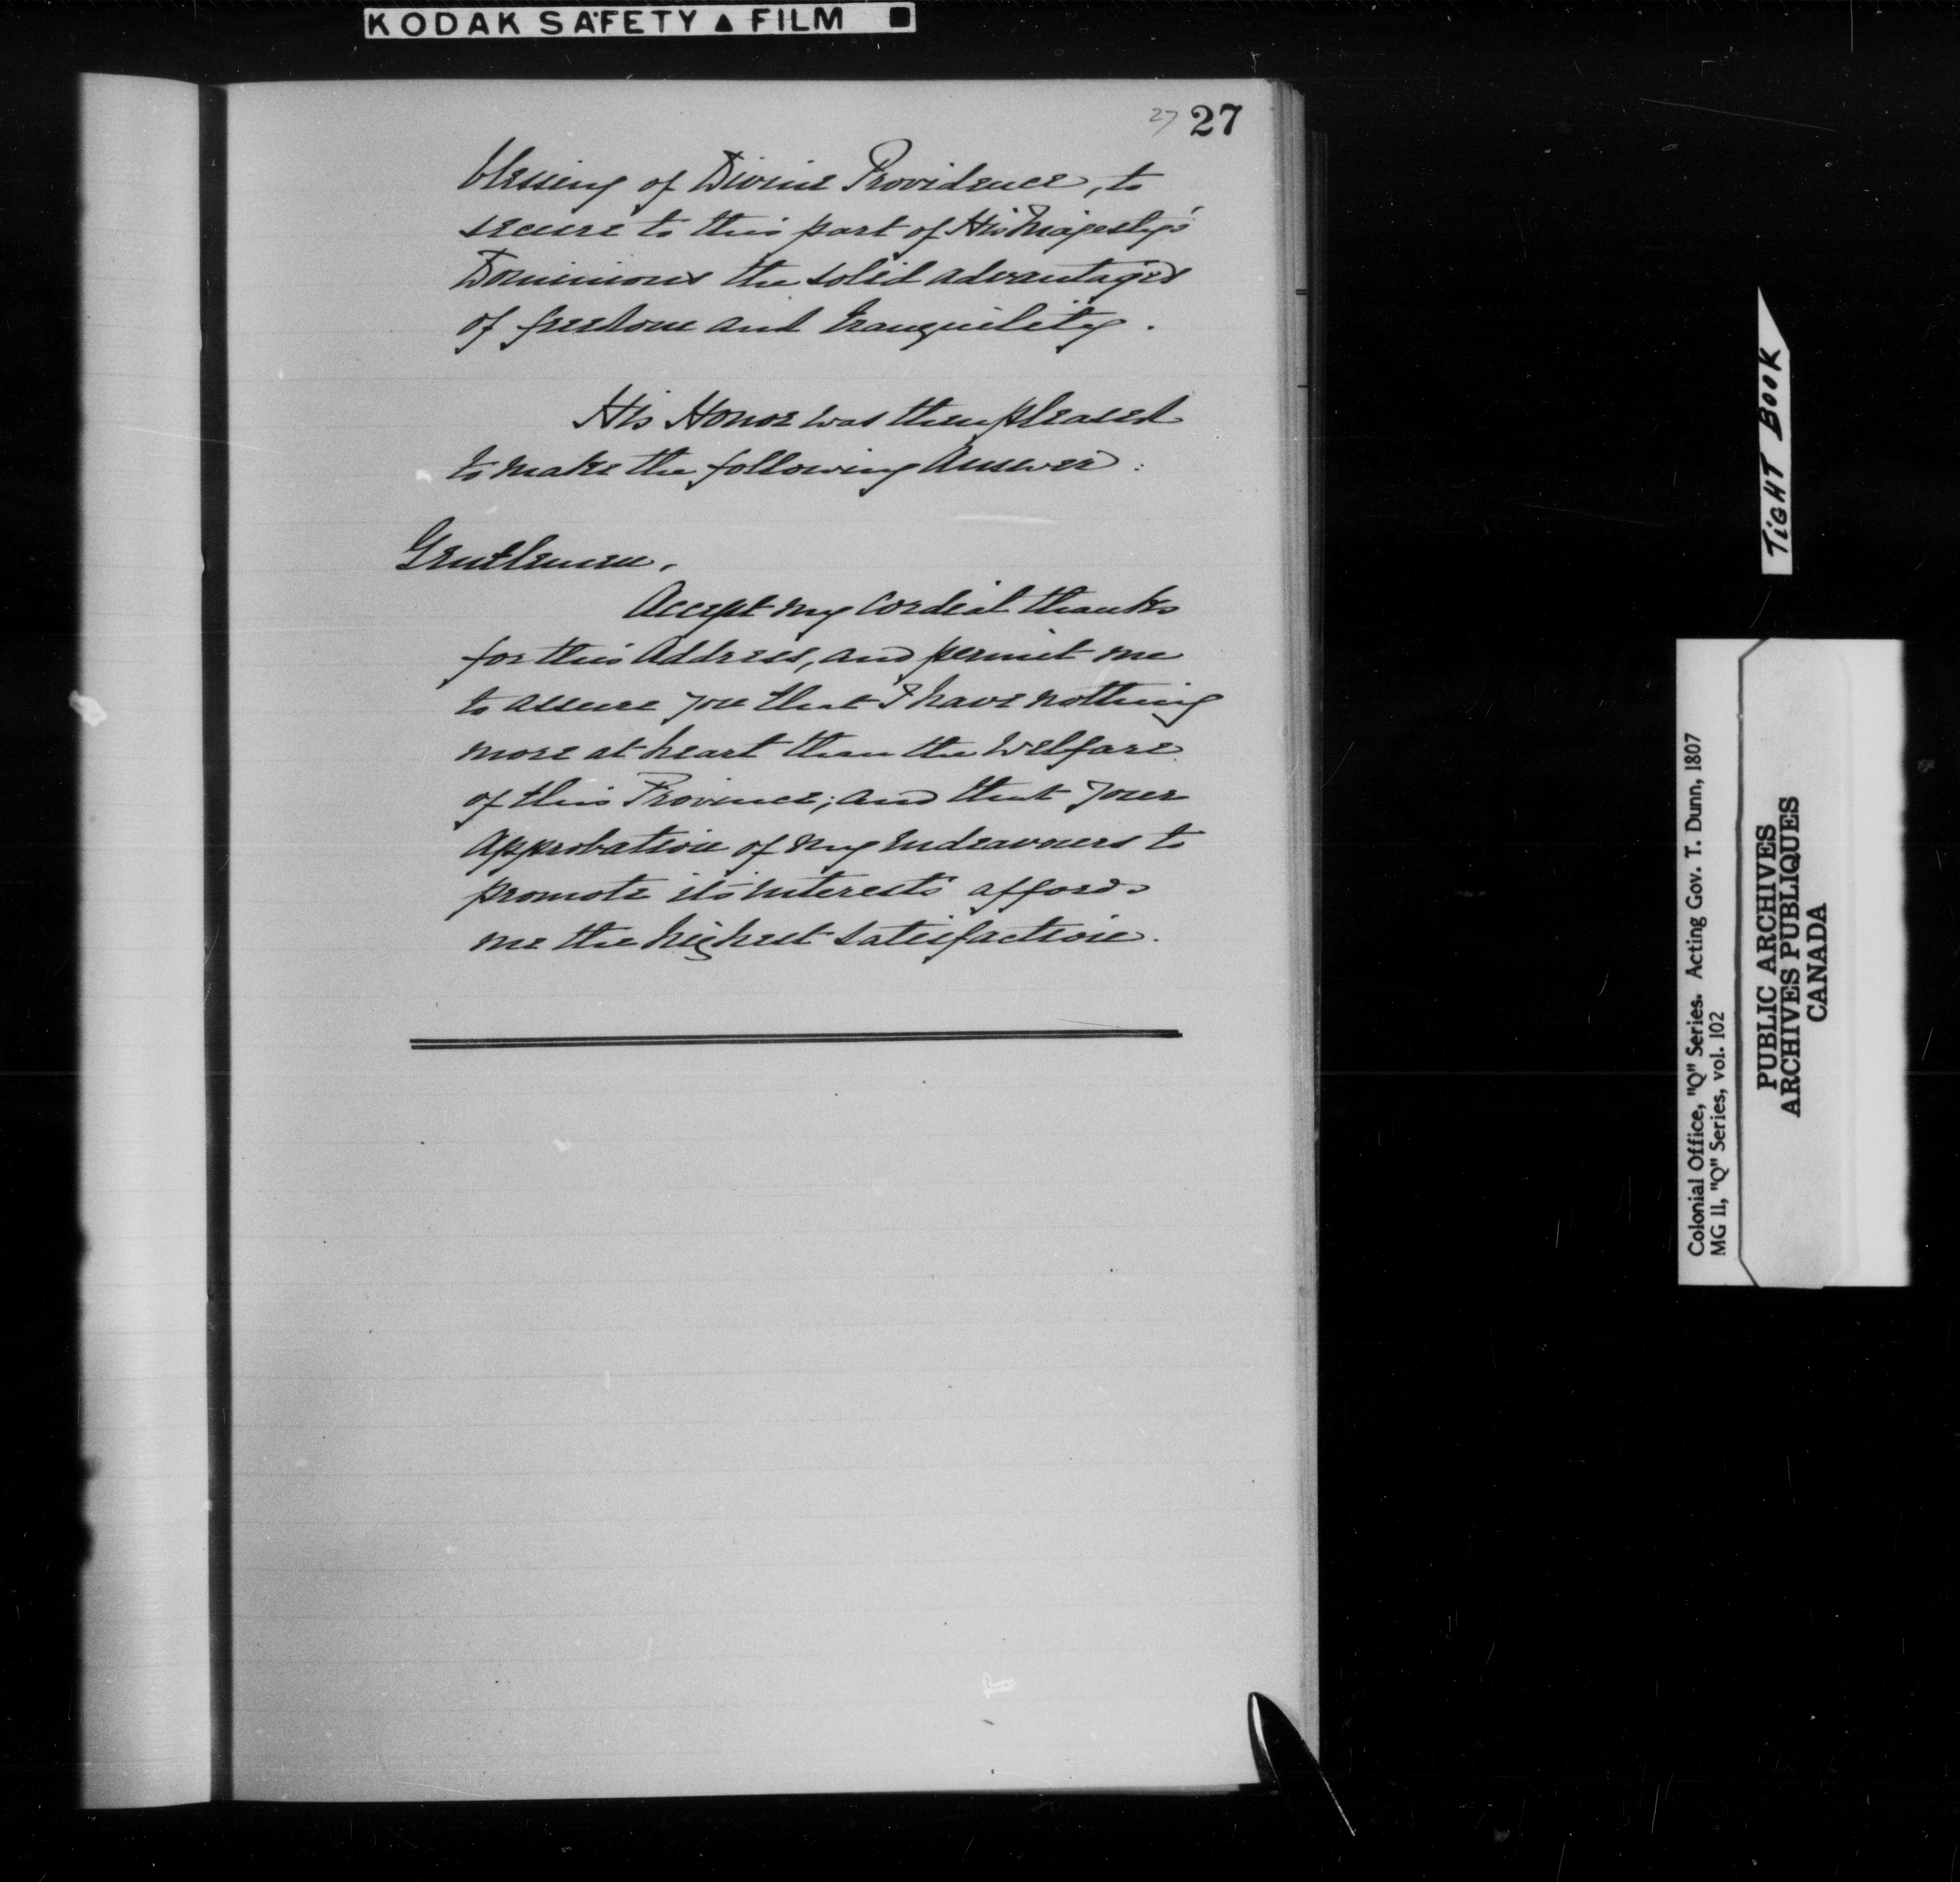 KODAK SAFETY ▲ FILM ■
27 27
blessing of Divine Providence, to
secure to this part of His Majesty's
Dominions the solid advantages
of freedom and tranquility.
His Honor was then pleased
to make the following Answer:
Gentlemen,
Accept my cordial thanks
for this Address, and permit me
to assure you that I have nothing
more at heart than the welfare
of this Province; and that your
approbation of my endeavours to
promote its interests affords
me the highest satisfaction.
TIGHT BOOK
Colonial Office, "Q" Series. Acting Gov. T. Dunn, 1807
MG 11, "Q" Series, vol. 102
PUBLIC ARCHIVES
ARCHIVES PUBLIQUES
CANADA